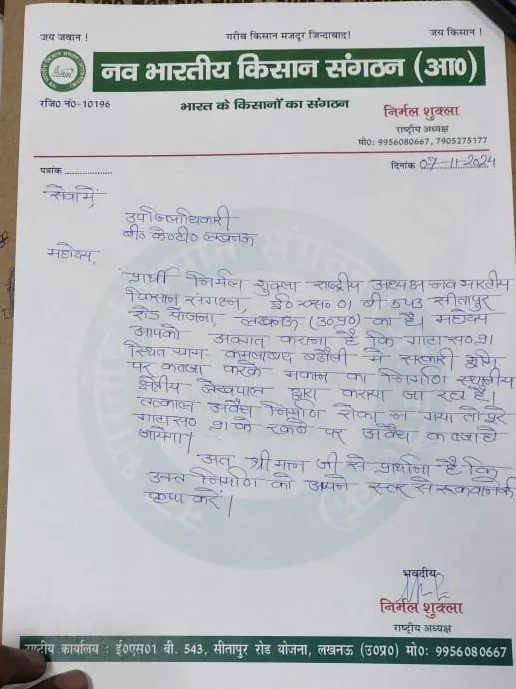 जय जवान ! गरीब किसान मजदूर जिन्दाबाद! जय किसान !
नव भारतीय किसान संगठन (आ०)
रजि० नं०-10196 भारत के किसानों का संगठन
निर्मल शुक्ला
राष्ट्रीय अध्यक्ष
मो०: 9956080667, 7905275177
पत्रांक .................. दिनांक 07-11-2024
सेवा में,
उपजिलाधिकारी
बी० के०टी० लखनऊ
महोदय,
प्रार्थी निर्मल शुक्ला राष्ट्रीय अध्यक्ष नव भारतीय
किसान संगठन, ई० एस० 01 बी 543 सीतापुर
रोड योजना, लखनऊ (उ०प्र०) का है। महोदय
आपको अवगत कराना है कि गाटा स०
स्थित ग्राम- कमलाबाद बढौली मे सरकारी भूमि
पर कब्जा करके मकान का निर्माण स्थानीय
क्षेत्रीय लेखपाल द्वारा कराया जा रहा है।
तत्काल अवैध निर्माण रोका न गया तो पूरे
गाटा स० के रकबे पर अवैध कब्जा हो
जायेगा।
अतः श्रीमान जी से प्रार्थना है कि
उक्त निर्माण को अपने स्तर से रुकवाने की
कृपा करें।
भवदीय
निर्मल शुक्ला
राष्ट्रीय अध्यक्ष
राष्ट्रीय कार्यालय : ई०एस01 बी. 543, सीतापुर रोड योजना, लखनऊ (उ०प्र०) मो०: 9956080667